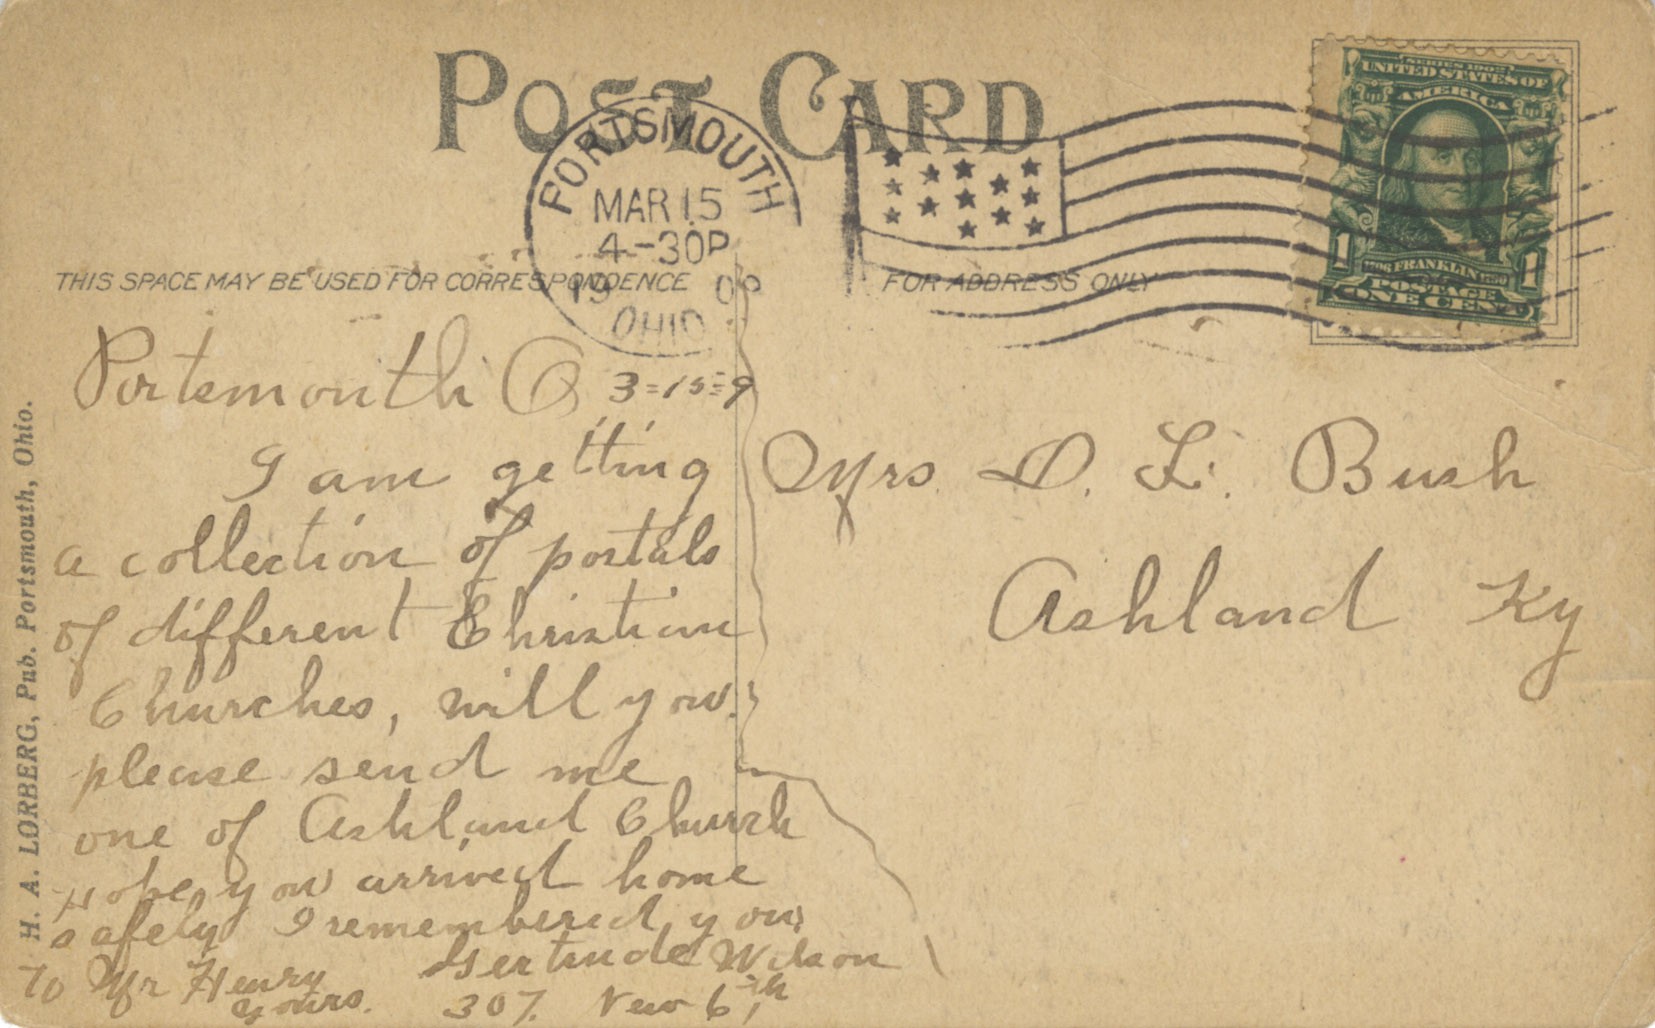 POST CARD
PORTSMOUTH
MAR 15
4-30P
19 09
OHIO
SERIES 1902
UNITED STATES OF
AMERICA
1 1
1706 FRANKLIN 1790
POSTAGE
ONE CENT
THIS SPACE MAY BE USED FOR CORRESPONDENCE
FOR ADDRESS ONLY
H. A. LORBERG, Pub. Portsmouth, Ohio.
Portsmouth O 3=15=9
I am getting
a collection of postals
of different Christian
Churches, will you
please send me
one of Ashland Church
Hope you arrived home
safely I remembered you
To Mr Henry Gertrude Wilson
yours. 307. New 6th
Mrs. D. L. Bush
Ashland Ky